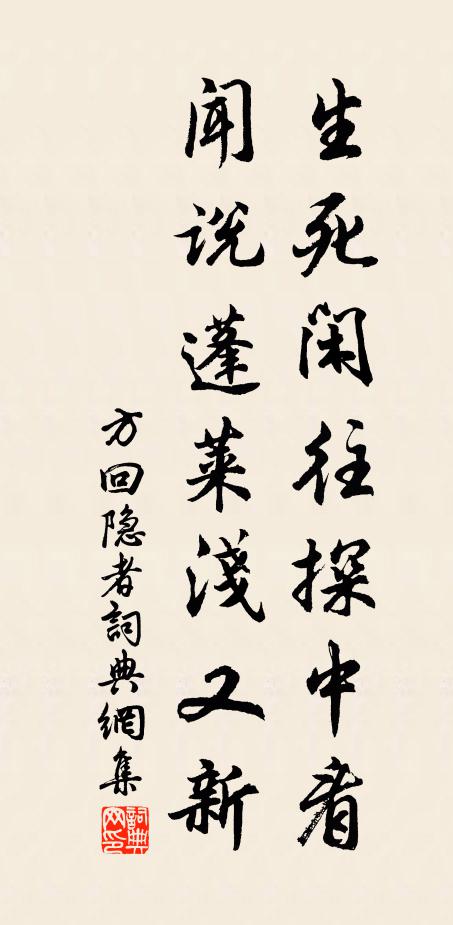 生死闲往探中看
闻说蓬莱淺又新
方回隐者詞典網集
詞典網印